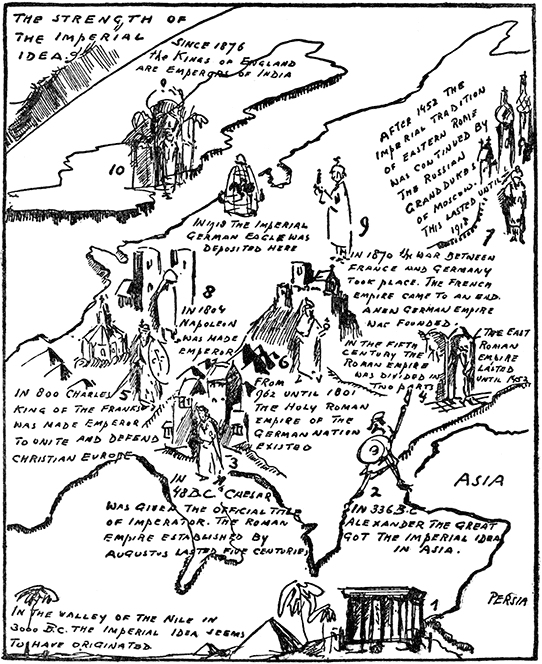 THE STRENGTH OF
THE IMPERIAL
IDEA
SINCE 1876
the KINGS OF ENGLAND
ARE EMPERORS OF INDIA
10
AFTER 1453 THE
IMPERIAL TRADITION
OF EASTERN ROME
WAS CONTINUED BY
THE RUSSIAN
GRANDDUKES
OF MOSCOW.
THIS LASTED UNTIL
1918
7
IN 1918 THE IMPERIAL
GERMAN EAGLE WAS
DEPOSITED HERE
9
IN 1870 the WAR BETWEEN
FRANCE AND GERMANY
TOOK PLACE. THE FRENCH
EMPIRE CAME TO AN END.
A NEW GERMAN EMPIRE
WAS FOUNDED.
8
IN 1804
NAPOLEON
WAS MADE
EMPEROR
IN THE FIFTH
CENTURY THE
ROMAN EMPIRE
WAS DIVIDED IN
TWO PARTS
THE EAST
ROMAN
EMPIRE
LASTED
UNTIL 1453
4
5
IN 800 CHARLES
KING OF THE FRANKS
WAS MADE EMPEROR
TO UNITE AND DEFEND
CHRISTIAN EUROPE
6
FROM
962 UNTIL 1801
THE HOLY ROMAN
EMPIRE OF THE
GERMAN NATION
EXISTED
3
IN
48 B.C. CAESAR
WAS GIVEN THE OFFICIAL TITLE
OF IMPERATOR. THE ROMAN
EMPIRE ESTABLISHED BY
AUGUSTUS LASTED FIVE CENTURIES
2
IN 336 B.C
ALEXANDER THE GREAT
GOT THE IMPERIAL IDEA
IN ASIA.
ASIA
PERSIA
1
IN THE VALLEY OF THE NILE IN
3000 B.C. THE IMPERIAL IDEA SEEMS
TO HAVE ORIGINATED